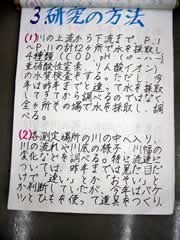 3.研究の方法
(1)川の上流から下流まで、P.1
~P.川の計12ヶ所で水を採取し
4種類(COD、pH(ペーハー)
亜硝酸性窒素、リン酸イオン)
の水質検査をする。ただし、今
年は昨年までと違って水を採取
してきてから調べるのではなく
全ヶ所その場で水を調べる。
(2)各測定場所の川の中へ入り、
川の流れや川底の様子、川幅の
変化などを調べる。特に流速に
ついては、昨年までは見た目だ
けで「速い」とか「おそい」と
か判断していたが、今年はバケ
ツとひもを使って道具をつくり、